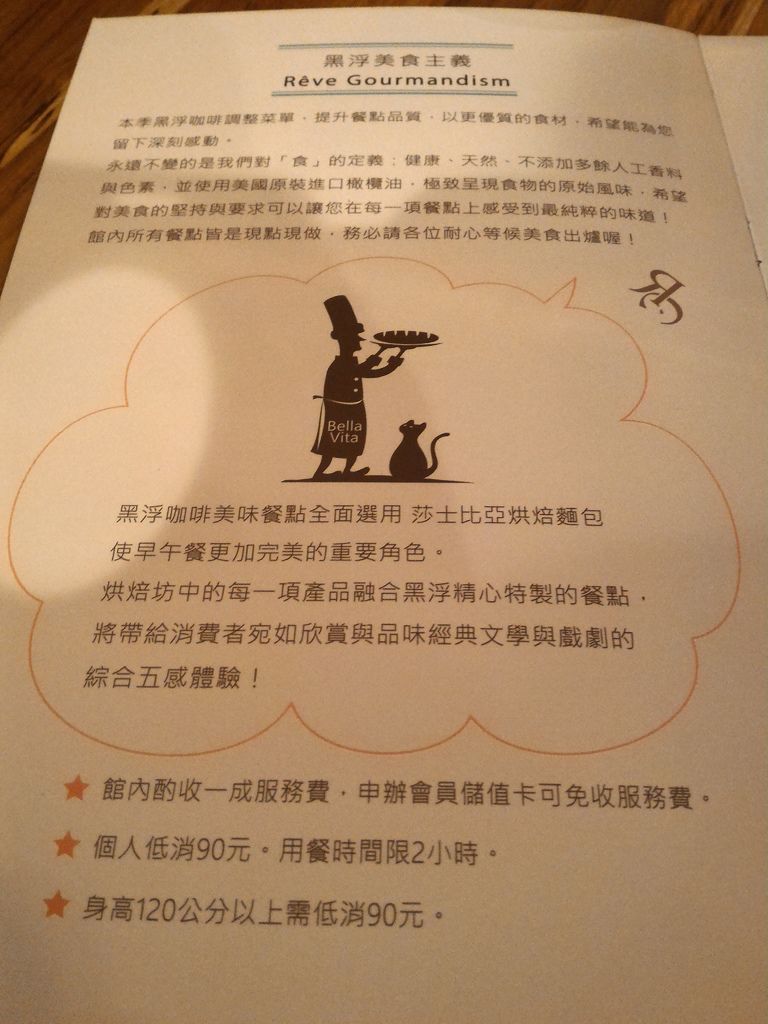 黑浮美食主義
Rêve Gourmandism
本季黑浮咖啡調整菜單，提升餐點品質，以更優質的食材，希望能為您
留下深刻感動。
永遠不變的是我們對「食」的定義：健康、天然、不添加多餘人工香料
與色素，並使用美國原裝進口橄欖油，極致呈現食物的原始風味，希望
對美食的堅持與要求可以讓您在每一項餐點上感受到最純粹的味道！
館內所有餐點皆是現點現做，務必請各位耐心等候美食出爐喔！
Bella
Vita
黑浮咖啡美味餐點全面選用 莎士比亞烘焙麵包
使早午餐更加完美的重要角色。
烘焙坊中的每一項產品融合黑浮精心特製的餐點，
將帶給消費者宛如欣賞與品味經典文學與戲劇的
綜合五感體驗！
★ 館內酌收一成服務費，申辦會員儲值卡可免收服務費。
★ 個人低消90元。用餐時間限2小時。
★ 身高120公分以上需低消90元。